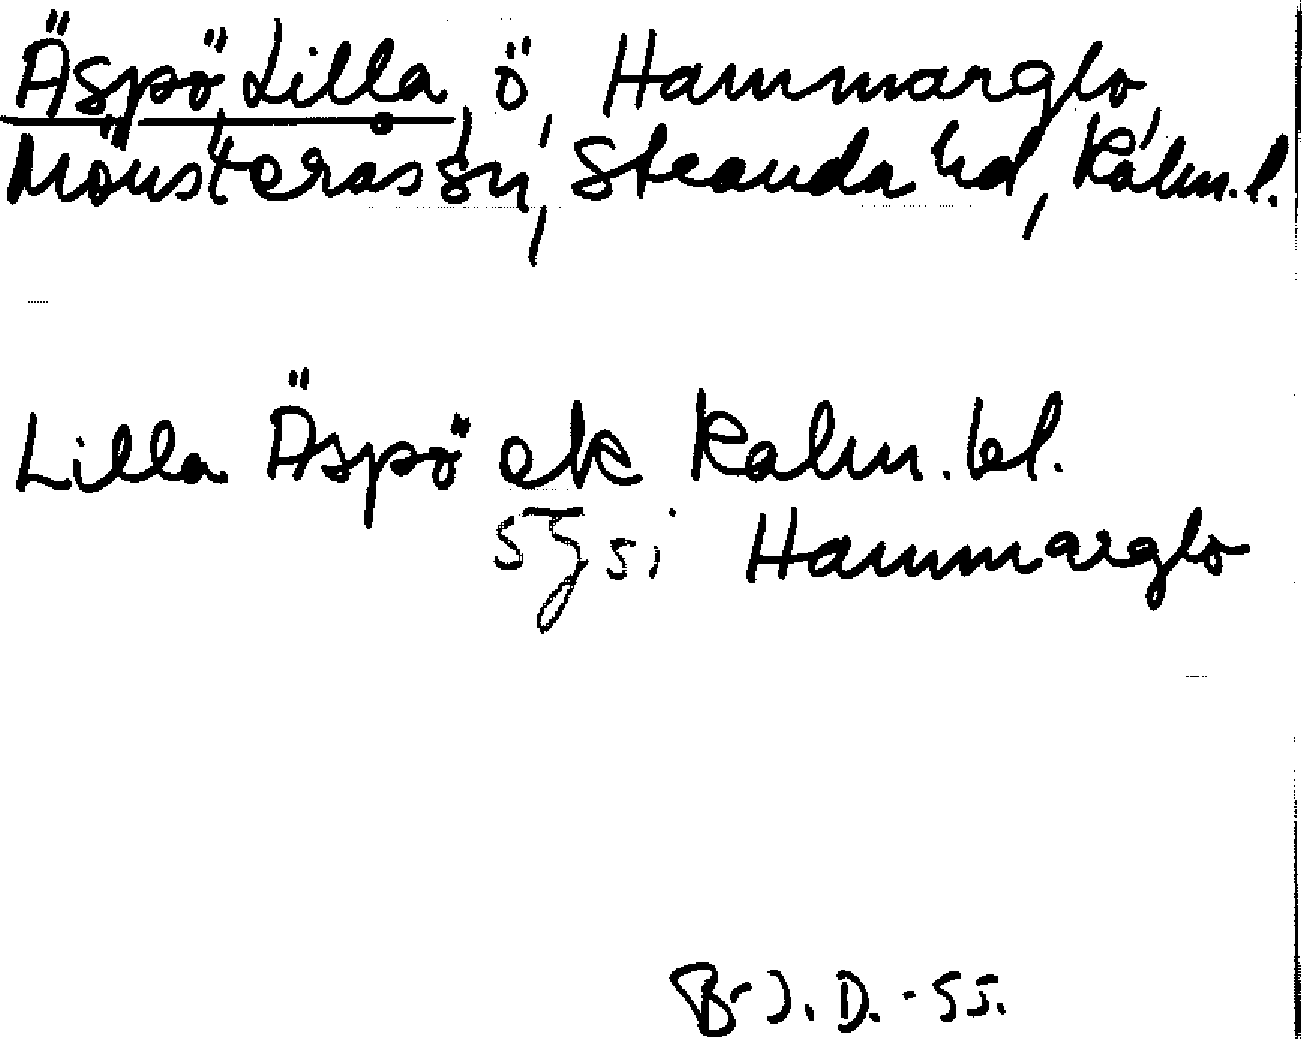 Äspö, Lilla, ö, Hammarglo,
Mönsterås sn, Stranda hd, Kalm. l.
Lilla Äspö ek Kalm. bl.
Hammarglo
B-J. D. -55.